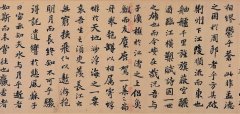 相繆鬱乎蒼蒼此非孟德
之困於周郎者乎方其破
荊州下江陵順流而東也
舳艫千里旌旗蔽空釃酒
臨江橫槊賦詩固一世之
雄也而今安在哉況吾與
子漁樵於江渚之上侶魚
蝦而友麋鹿駕一葉之扁
舟舉匏樽以相屬寄蜉
蝣於天地渺滄海之一粟
哀吾生之須臾羨長江之
無窮挾飛仙以遨遊抱
明月而長終知不可乎驟
得託遺響於悲風蘇子
曰客亦知夫水與月乎逝者
如斯而未嘗往也盈虛者